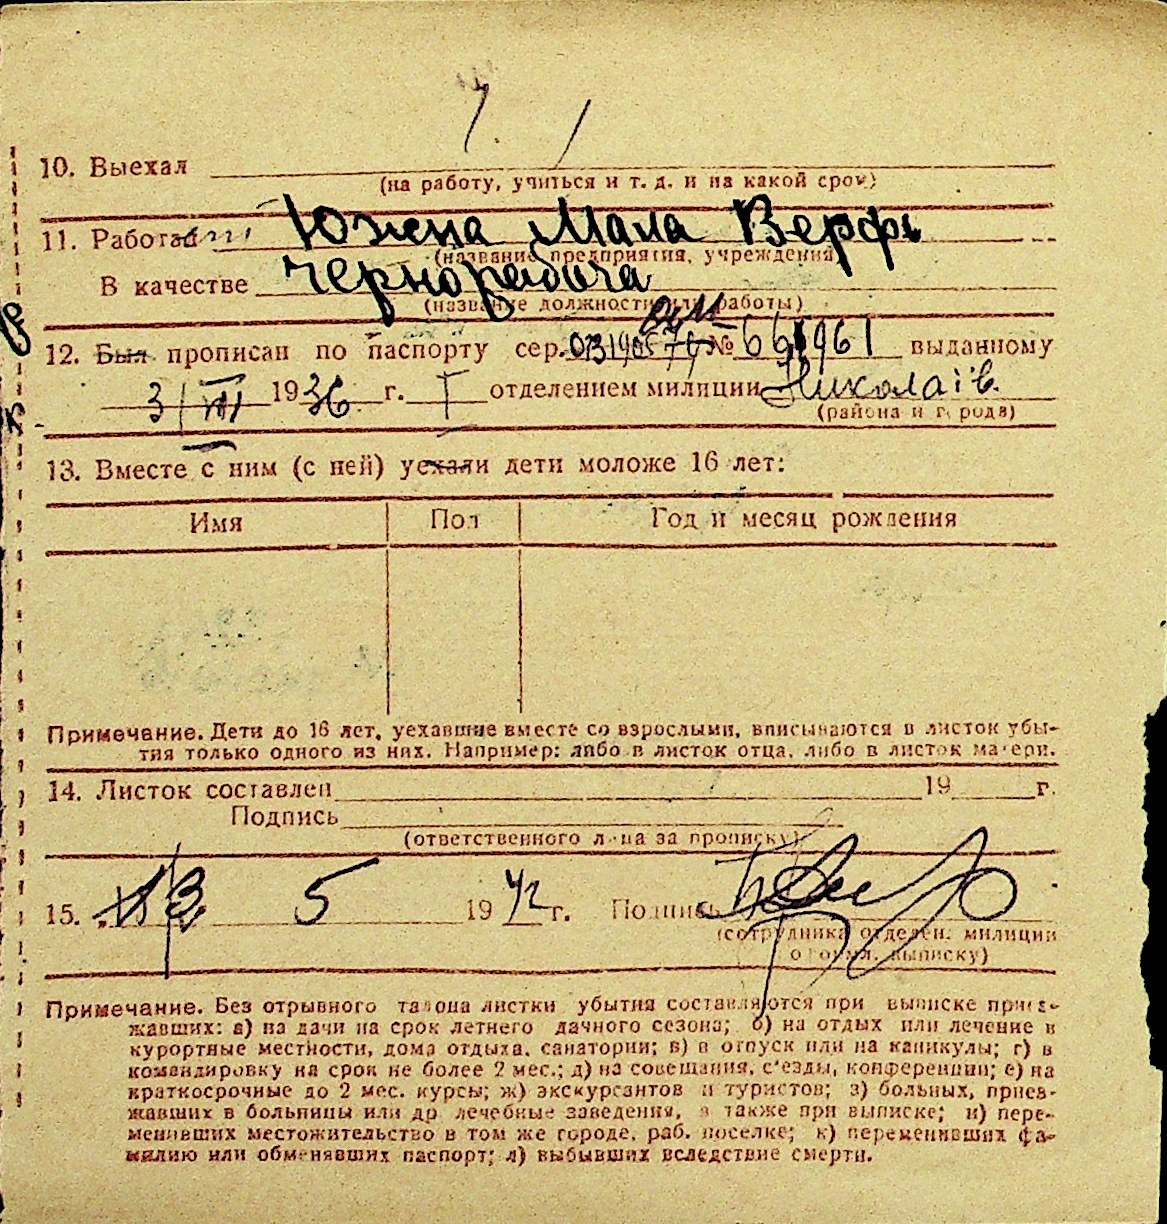 10. Выехал
(на работу, учиться и т. д. и на какой срок)
11. Работал Южна Мала Верфь
(название предприятия, учреждения)
В качестве чернорабоча
(название должности или работы)
12. Был прописан по паспорту сер. № 661961 выданному
3/VIII 1936 г. I отделением милиции Николаїв.
(района и города)
13. Вместе с ним (с ней) уехали дети моложе 16 лет:
Имя Пол Год и месяц рождения
Примечание. Дети до 16 лет, уехавшие вместе со взрослыми, вписываются в листок убы-
тия только одного из них. Например: либо в листок отца, либо в листок матери.
14. Листок составлен 19 г.
Подпись
(ответственного лица за прописку)
15. 5 1942 г. Подпись
(сотрудника отделен. милиции
оформл. выписку)
Примечание. Без отрывного талона листки убытия составляются при выписке приез-
жавших: а) на дачи на срок летнего дачного сезона; б) на отдых или лечение в
курортные местности, дома отдыха, санатории; в) в отпуск или на каникулы; г) в
командировку на срок не более 2 мес.; д) на совещания, с'езды, конференции; е) на
краткосрочные до 2 мес. курсы; ж) экскурсантов и туристов; з) больных, приез-
жавших в больницы или др лечебные заведения, а также при выписке; и) пере-
менивших местожительство в том же городе, раб. поселке; к) переменивших фа-
милию или обменявших паспорт; л) выбывших вследствие смерти.